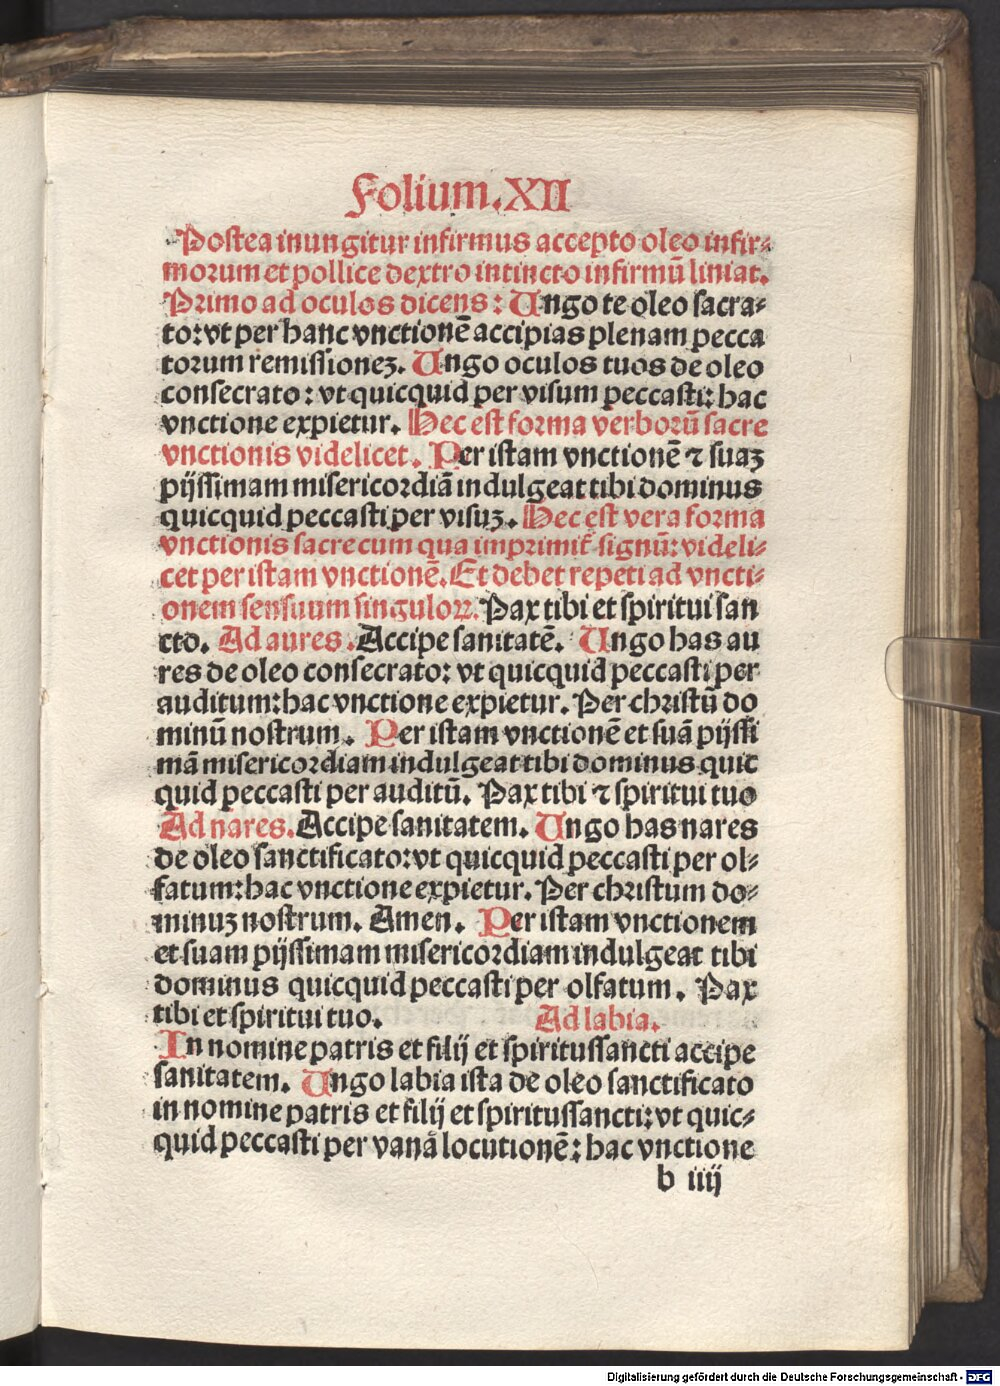 Folium.XII
Postea inungitur infirmus accepto oleo infir⸗
morum et pollice dextro intincto infirmū liniat.
Primo ad oculos dicens: Ungo te oleo sacra⸗
to: vt per hanc vnctionē accipias plenam pecca
torum remissionez. Ungo oculos tuos de oleo
consecrato: vt quicquid per visum peccasti: hac
vnctione expietur. Hec est forma verborū sacre
vnctionis videlicet. Per istam vnctionē ⁊ suaz
pijssimam misericordiā indulgeat tibi dominus
quicquid peccasti per visuz. Hec est vera forma
vnctionis sacre cum qua imprimit̄ signū: videli⸗
cet per istam vnctionē. Et debet repeti ad vncti⸗
onem sensuum singuloꝝ. Pax tibi et spiritui san
cto. Ad aures. Accipe sanitatē. Ungo has au
res de oleo consecrato: vt quicquid peccasti per
auditum: hac vnctione expietur. Per christū do
minū nostrum. Per istam vnctionē et suā pijssi
mā misericordiam indulgeat tibi dominus quic
quid peccasti per auditū. Pax tibi ⁊ spiritui tuo
Ad nares. Accipe sanitatem. Ungo has nares
de oleo sanctificato: vt quicquid peccasti per ol⸗
fatum: hac vnctione expietur. Per christum do⸗
minuz nostrum. Amen. Per istam vnctionem
et suam pijssimam misericordiam indulgeat tibi
dominus quicquid peccasti per olfatum. Pax
tibi et spiritui tuo. Ad labia.
In nomine patris et filij et spiritussancti accipe
sanitatem. Ungo labia ista de oleo sanctificato
in nomine patris et filij et spiritussancti: vt quic⸗
quid peccasti per vanā locutionē: hac vnctione
b iiij
Digitalisierung gefördert durch die Deutsche Forschungsgemeinschaft - DFG